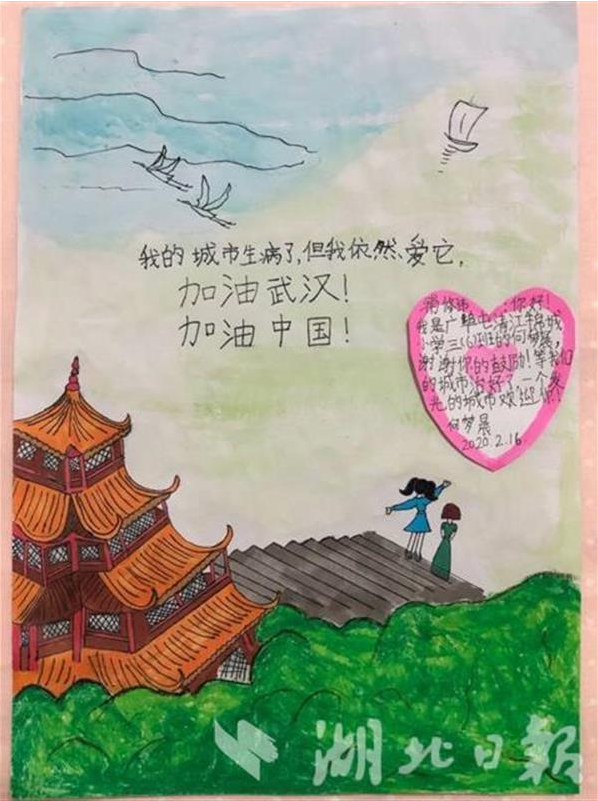 我的城市生病了,但我依然、爱它,
加油武汉!
加油中国!
你好!
我是广埠屯清江锦城
小学三(6)班的何梦晨,
谢谢你的鼓励!等我们
的城市治好了,一个发
光的城市欢迎你!
何梦晨
2020.2.16
湖北日报